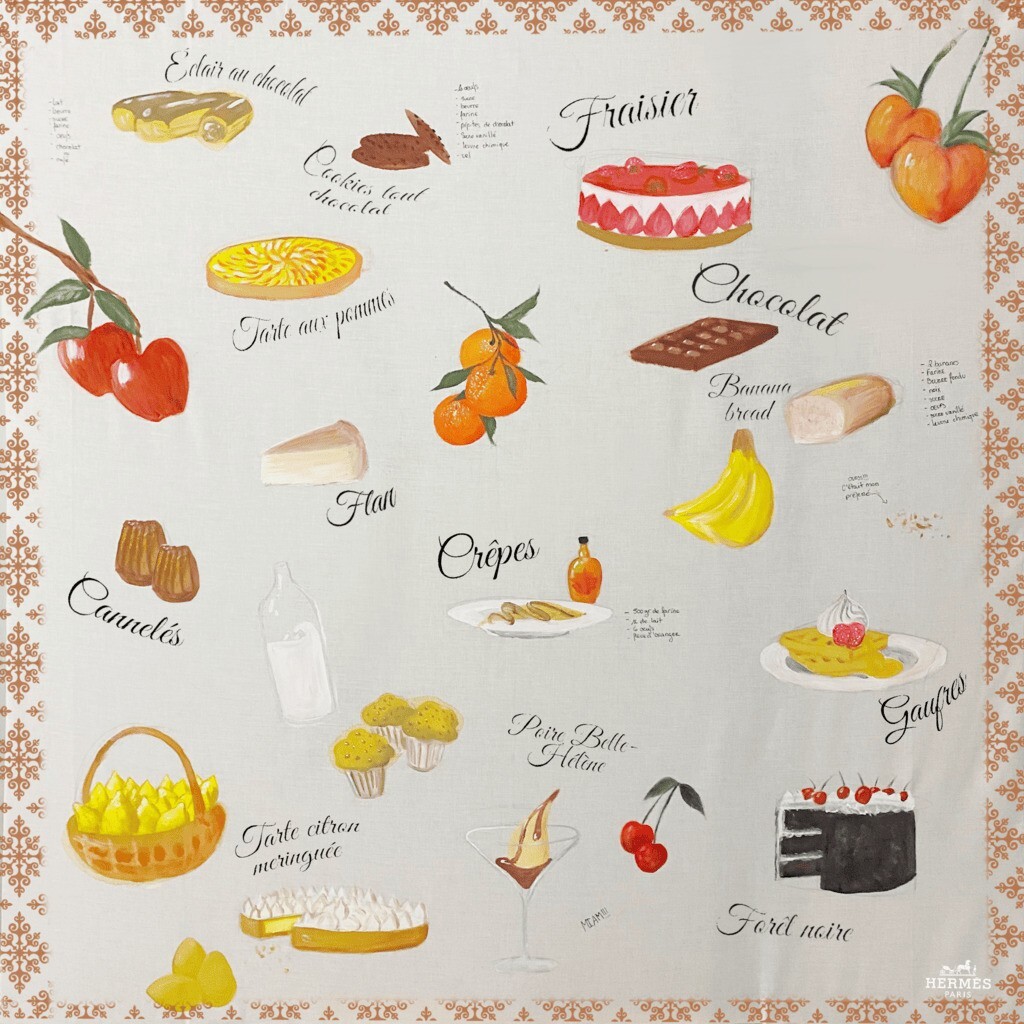 Éclair au chocolat
- lait
- beurre
- sucre
- farine
- oeufs
- chocolat
Cookies tout
chocolat
- sucre
- beurre
- farine
- pépites de chocolat
- levure chimique
- sel
Fraisier
Tarte aux pommes
Chocolat
Banana
bread
- 2 bananes
- Farine
- Beurre fondu
- sucre
- oeufs
- levure chimique
Flan
c'était mon
préféré
Crêpes
- 500gr de farine
- 1L de lait
- 6 oeufs
Cannelés
Gaufres
Poire Belle-
Hélène
Tarte citron
meringuée
MIAM!!!
Forêt noire
HERMÈS
PARIS